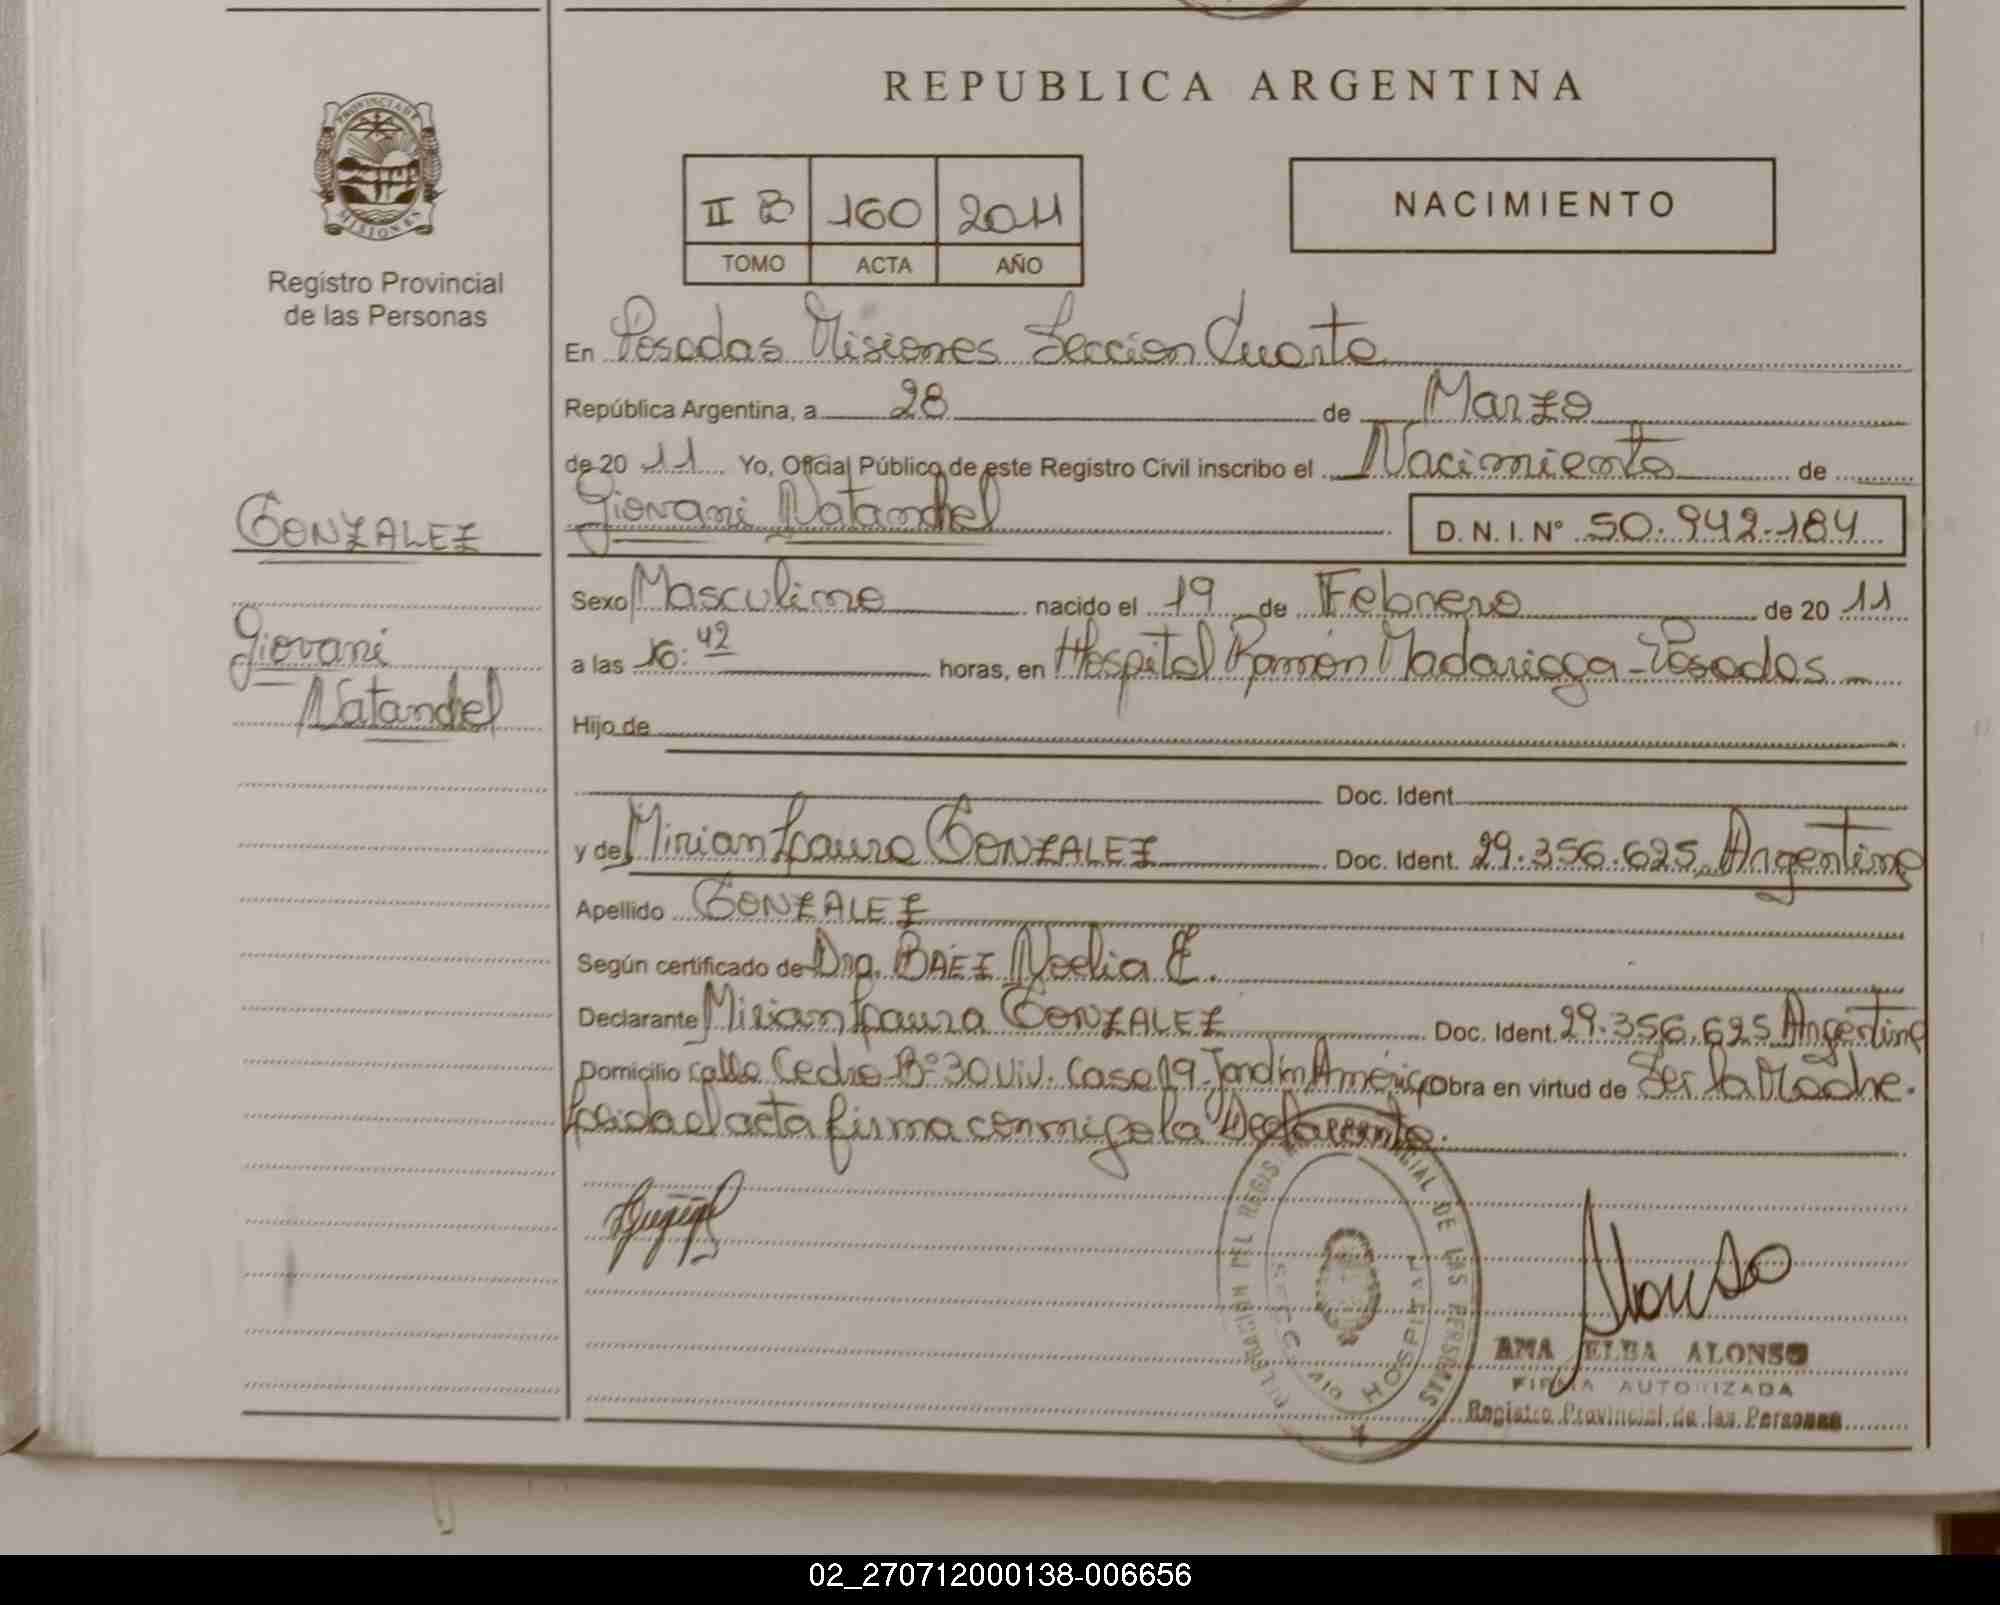 REPUBLICA ARGENTINA
PROVINCIA DE
MISIONES
Registro Provincial
de las Personas
II B 160 2011
TOMO ACTA AÑO
NACIMIENTO
En Posadas Misiones Seccion Cuarta
República Argentina, a 28 de Marzo
de 20 11 Yo, Oficial Público de este Registro Civil inscribo el Nacimiento de
Giovani Natanahel D. N. I. N° 50.942.184
GONZALEZ
Giovani
Natanahel
Sexo Masculino nacido el 19 de Febrero de 20 11
a las 16:42 horas, en Hospital Ramón Madariaga - Posadas
Hijo de
Doc. Ident.
y de Mirian Laura GONZALEZ Doc. Ident. 29.356.625 Argentina
Apellido GONZALEZ
Según certificado de Dra. BAEZ Noelia E.
Declarante Mirian Laura GONZALEZ Doc. Ident. 29.356.625 Argentina
Domicilio calle Cedro B° 30 Viv. Casa 19 Jardín América Obra en virtud de Ser la Madre.
Leida el acta firma conmigo la Declarante.
REGISTRO PROVINCIAL DE LAS PERSONAS
HOSPITAL
Alonso
ANA ELBA ALONSO
FIRMA AUTORIZADA
Registro Provincial de las Personas
02_270712000138-006656